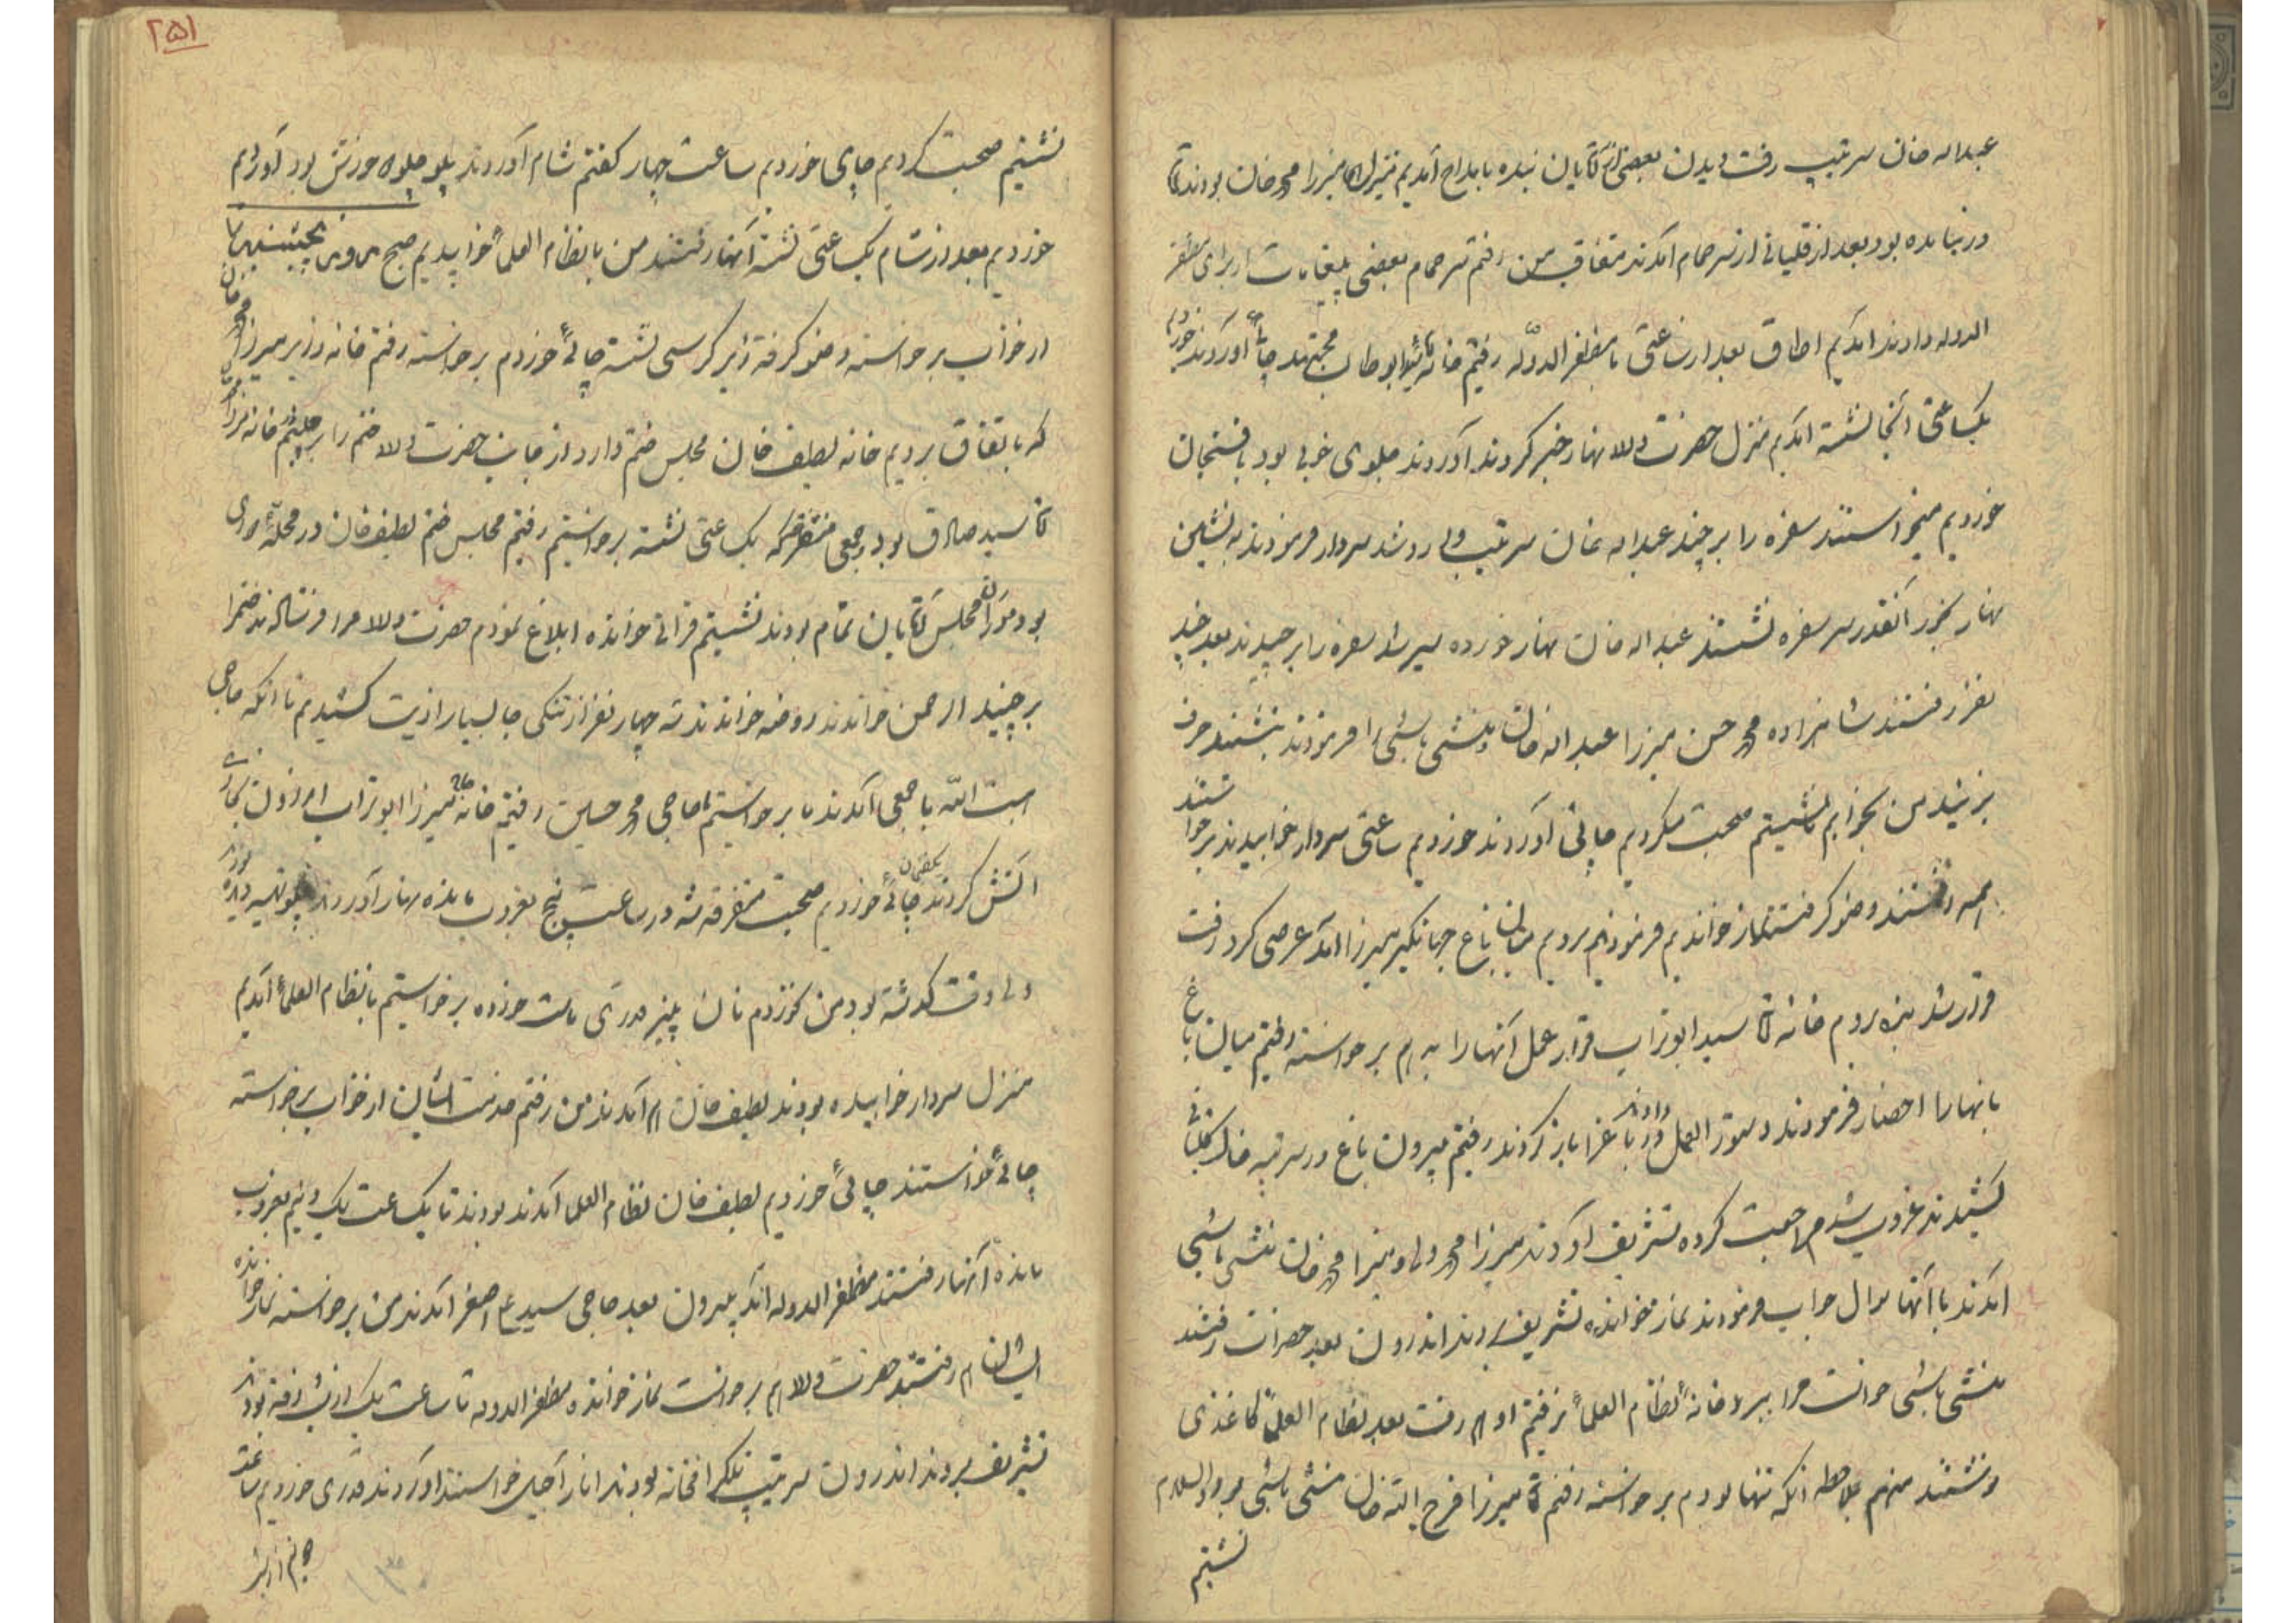 عبداله خان سرتیپ رفت دیدن بعضی از آقایان بنده با مداح آمدیم منزل میرزا محمد خان بودند
بعد از قلیانی از سر حمام آمدند متفاق من رفتم سر حمام بعضی پیغامات از برای مظفر
الدوله دادند آمدیم اطاق بعد از ساعتی با مظفر الدوله رفتیم خانه ابو طالب مجتهد چائی آوردند خوردم
یکساعتی آنجا نشسته آمدیم منزل حضرت والا نهار خبر کردند آوردند چلوی خوبی بود با فسنجان
خوردیم میخواستند سفره را بر چیند عبداله خان سرتیپ وارد شد سردار فرمودند بنشین
نهار بخور آنقدر سر سفره نشستند عبداله خان نهار خورده سیر شد سفره را برچیدند بعد چند
نفر رفتند شاهزاده محمد حسن میرزا عبداله خان منشی باشی را فرمودند بنشینند حرف
بزنید من بخوابم نشستیم صحبت میکردیم چائی آوردند خوردیم ساعتی سردار خوابیدند برخواستند
همه رفتند وضو گرفتند نماز خواندیم فرمودند برویم میان باغ جهانگیر میرزا آمد عرضی کرد رفت
قرار شد بنده بروم خانه آقا سید ابوتراب قرار عمل آنها را بدهم برخواسته رفتم میان باغ
باغبانها را احضار فرمودند دستور العمل دادند باغ را باز کردند رفتیم بیرون باغ در سر تپه خاک
کشیدند غروب شد مراجعت کرده تشریف آوردند میرزا محمد ولی و میرزا محمد خان منشی باشی
آمدند با آنها سوال جواب فرمودند نماز خوانده تشریف بردند اندرون بعد حضرات رفتند
منشی باشی خواست مرا ببرد خانه نظام العلماء نرفتم او هم رفت بعد نظام العلماء کاغذی
نوشتند منهم بملاحظه آنکه تنها بودم برخواسته رفتم آقا میرزا فرج الله خان منشی باشی بود والسلام
نشستیم
۲۵۱
نشستیم صحبت کردیم چای خوردیم ساعت چهار گفتم شام آوردند پلو چلو خورش بود آوردیم
خوردیم بعد از شام یکساعتی نشسته آنها رفتند من با نظام العلماء خوابیدیم صبح پنجشنبه
از خواب برخواسته وضو گرفته زیر کرسی نشسته چائی خوردم برخواسته رفتم خانه وزیر میرزا
که باتفاق برویم خانه لطیف خان مجلس ختم دارد از جانب حضرت والا ختم را برچینم
آقا سید صادق بود جمعی متفرقه یکساعتی نشسته برخواستیم رفتیم مجلس ختم لطیف خان در محله
بود مجلس آقایان تمام بودند نشستیم قرآنی خوانده ابلاغ نمودم حضرت والا مرا فرستاده اند ختم را
برچیند الرحمن خواندند روضه خواندند سه چهار نفر از تنگی جا بسیار اذیت کشیدیم تا آنکه حاجی
با جمعی آمدند ما برخواستیم حاجی محمد حسین رفتیم خانه میرزا ابوتراب امروز
آتش کردند چائی خوردیم صحبت متفرقه شد در ساعت پنج بغروب مانده نهار آوردند
ولی وقت گذشته بود من نخوردم نان پنیر قدری ماست خورده برخواستیم با نظام العلماء آمدیم
منزل سردار خوابیده بودند لطیف خان هم آمدند من رفتم خدمت ایشان از خواب برخواسته
چائی خواستند چائی خوردیم لطیف خان نظام العلما آمدند بودند تا یکساعت یک و نیم بغروب
مانده آنها رفتند مظفر الدوله آمد بیرون بعد حاجی سید علی اصغر آمدند من برخواسته نماز خوانده
ایشان هم رفتند حضرت والا هم برخواست نماز خوانده مظفر الدوله تا ساعت یک از شب رفته بودند
تشریف بردند اندرون سرتیپ تلگرافخانه بودند انار آجیل خواستند آوردند قدری خوردیم ساعت